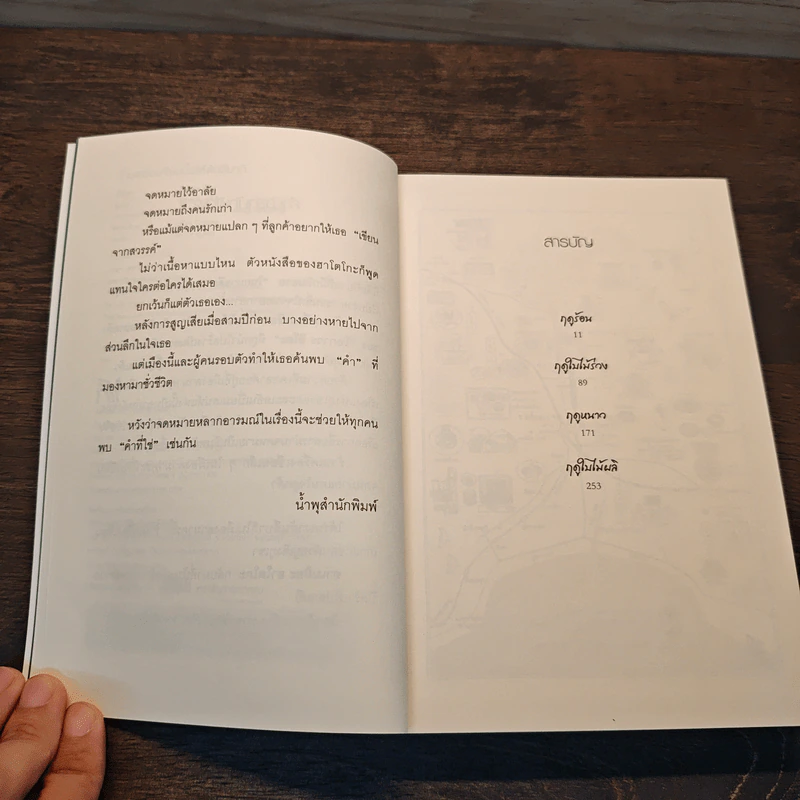 จดหมายไว้อาลัย
จดหมายถึงคนรักเก่า
หรือแม้แต่จดหมายแปลก ๆ ที่ลูกค้าอยากให้เธอ “เขียน
จากสวรรค์”
ไม่ว่าเนื้อหาแบบไหน ตัวหนังสือของฮาโตโกะก็พูด
แทนใจใครต่อใครได้เสมอ
ยกเว้นก็แต่ตัวเธอเอง...
หลังการสูญเสียเมื่อสามปีก่อน บางอย่างหายไปจาก
ส่วนลึกในใจเธอ
แต่เมืองนี้และผู้คนรอบตัวทำให้เธอค้นพบ “คำ” ที่
มองหามาชั่วชีวิต
หวังว่าจดหมายหลากอารมณ์ในเรื่องนี้จะช่วยให้ทุกคน
พบ “คำที่ใช่” เช่นกัน
น้ำพุสำนักพิมพ์
สารบัญ
ฤดูร้อน
11
ฤดูใบไม้ร่วง
89
ฤดูหนาว
171
ฤดูใบไม้ผลิ
253